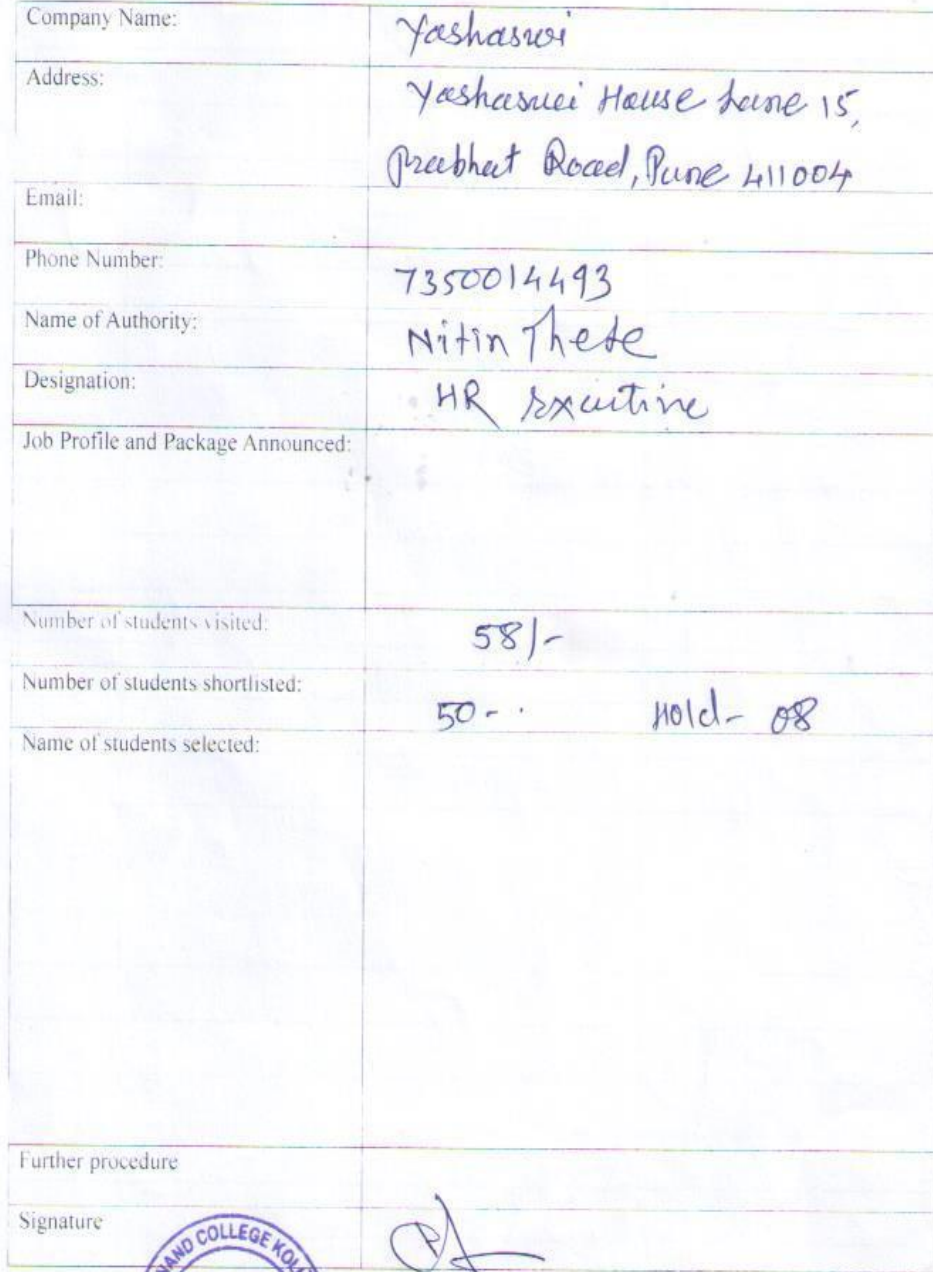 Company Name: Yashaswi
Address: Yashaswi House Lane 15,
Prabhat Road, Pune 411004
Email:
Phone Number: 7350014493
Name of Authority: Nitin Thete
Designation: HR Executive
Job Profile and Package Announced:
Number of students visited: 58/-
Number of students shortlisted: 50-. Hold- 08
Name of students selected:
Further procedure
Signature
NAND COLLEGE KOL